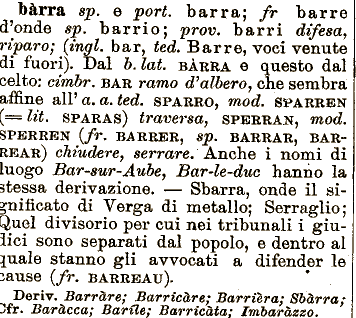 bàrra sp. e port. barra; fr barre
d'onde sp. barrio; prov. barri difesa,
riparo; (ingl. bar, ted. Barre, voci venute
di fuori). Dal b. lat. BÀRRA e questo dal
celto: cimbr. BAR ramo d'albero, che sembra
affine all' a. a. ted. SPARRO, mod. SPARREN
(= lit. SPARAS) traversa, SPERRAN, mod.
SPERREN (fr. BARRER, sp. BARRAR, BAR-
REAR) chiudere, serrare. Anche i nomi di
luogo Bar-sur-Aube, Bar-le-duc hanno la
stessa derivazione. — Sbarra, onde il si-
gnificato di Verga di metallo; Serraglio;
Quel divisorio per cui nei tribunali i giu-
dici sono separati dal popolo, e dentro al
quale stanno gli avvocati a difender le
cause (fr. BARREAU).
Deriv. Barràre; Barricàre; Barrièra; Sbàrra;
Cfr. Baràcca; Barìle; Barricàta; Imbaràzzo.